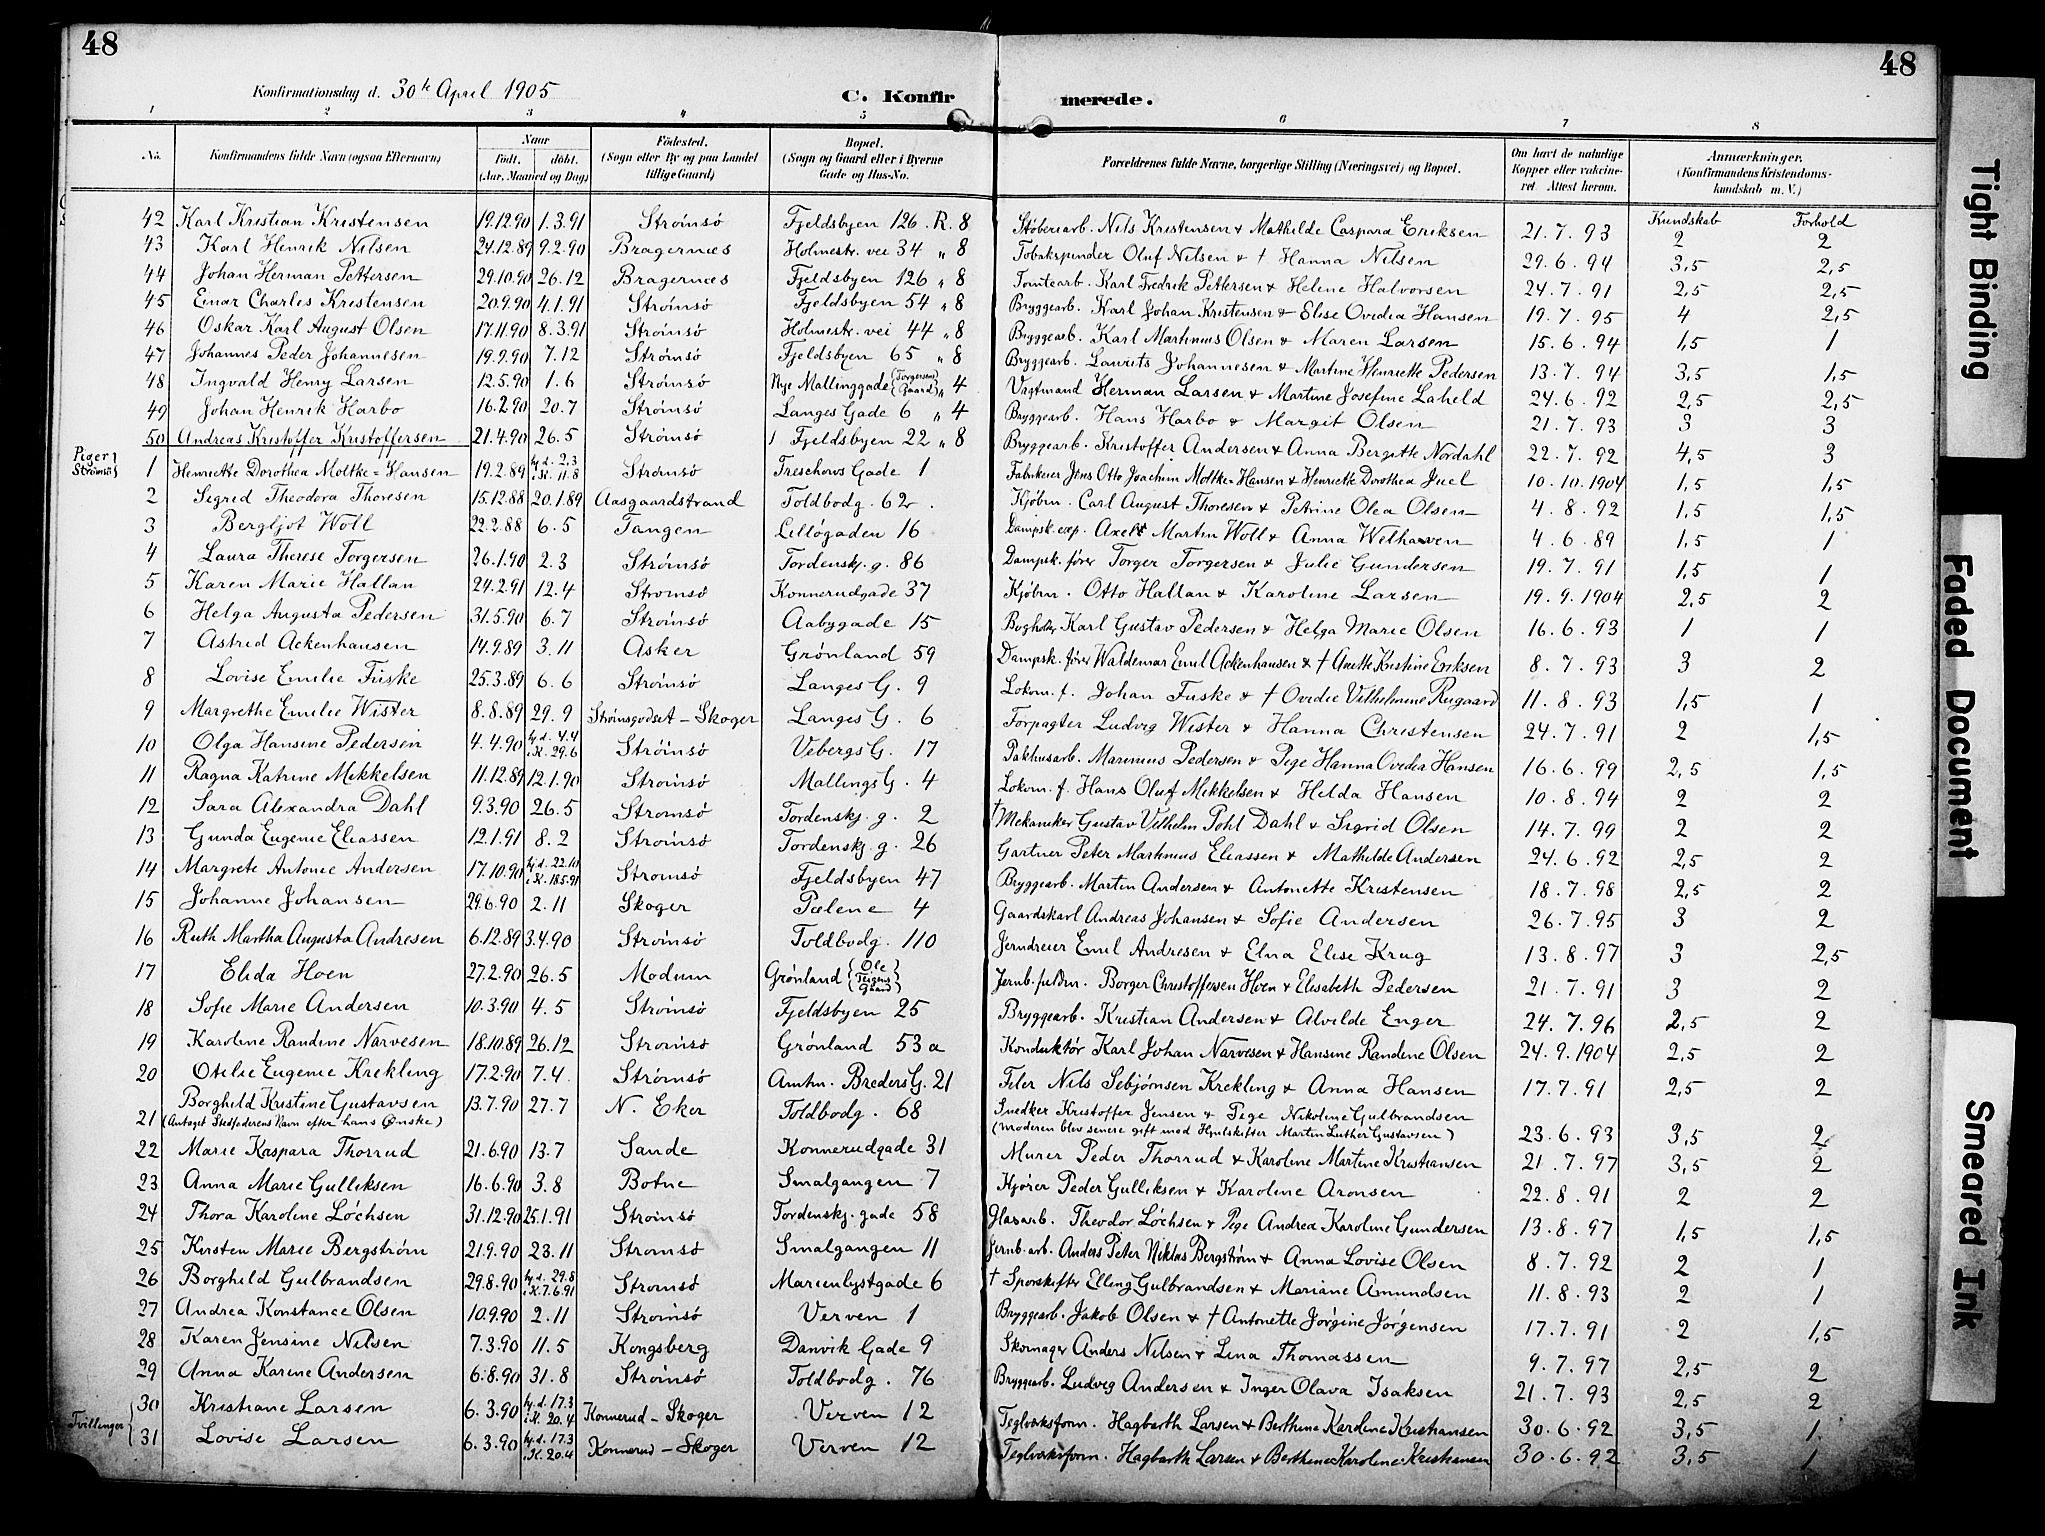 48
48
Konfirmationsdag d. 30te April 1905
C. Konfir merede.
1 2 3 4 5 6 7 8
No. Konfirmandens fulde Navn (ogsaa Efternavn) Naar født. døbt. (Aar, Maaned og Dag) Fødested. (Sogn eller By og paa Landet tillige Gaard) Bopæl. (Sogn og Gaard eller i Byerne Gade og Hus-No. Forældrenes fulde Navne, borgerlige Stilling (Næringsvei) og Bopæl. Om havt de naturlige Kopper eller vakcineret. Attest herom. Anmærkninger. (Konfirmandens Kristendomskundskab m. V.)
Kundskab Forhold
42 Karl Kristian Kristensen 19.12.90 1.3.91 Strømsø Fjeldsbyen 126. R. 8 Støberiarb. Nils Kristensen & Mathilde Caspara Eriksen 21.7.93 2 2
43 Karl Henrik Nilsen 24.12.89 9.2.90 Bragernæs Holmestr. vei 34 " 8 Tobakspinder Oluf Nilsen & † Hanna Nilsen 29.6.94 3,5 2,5
44 Johan Herman Pettersen 29.10.90 26.12 Bragernæs Fjeldsbyen 126 " 8 Tomtearb. Karl Fredrik Pettersen & Helene Halvorsen 24.7.91 2,5 2,5
45 Einar Charles Kristensen 20.9.90 4.1.91 Strømsø Fjeldsbyen 54 " 8 Bryggearb. Karl Johan Kristensen & Elise Ovidia Hansen 19.7.95 4 2,5
46 Oskar Karl August Olsen 17.11.90 8.3.91 Strømsø Holmestr. vei 44 " 8 Bryggearb. Karl Martinius Olsen & Maren Larsen 15.6.94 1,5 1
47 Johannes Peder Johannesen 19.9.90 7.12 Strømsø Fjeldsbyen 65 " 8 Bryggearb. Laurits Johannesen & Martine Henriette Pedersen 13.7.94 3,5 1,5
48 Ingvald Henry Larsen 12.5.90 1.6 Strømsø Nye Mallinggade (Torgersen Gaard) " 4 Vægtmand Herman Larsen & Martine Josefine Laheld 24.6.92 2,5 2,5
49 Johan Henrik Harbo 16.2.90 20.7 Strømsø Langes Gade 6 " 4 Bryggearb. Hans Harbo & Margit Olsen 21.7.93 3 3
50 Andreas Kristoffer Kristoffersen 21.4.90 26.5 Strømsø Fjeldsbyen 22 " 8 Bryggearb. Kristoffer Andersen & Anna Bergitte Nordahl 22.7.92 4,5 3
Piger Strømsø
1 Henriette Dorothea Moltke-Hansen 19.2.89 hj.d. 2.3 i K. 11.8 Strømsø Treschows Gade 1 Fabrikeier Jens Otto Joachim Moltke-Hansen & Henriette Dorothea Juel 10.10.1904 1,5 1,5
2 Sigrid Theodora Thoresen 15.12.88 20.1.89 Aasgaardstrand Toldbodg. 62. Kjøbm. Carl August Thoresen & Petrine Olea Olsen 4.8.92 1,5 1,5
3 Bergljot Woll 22.2.88 6.5 Tangen Lilløgaden 16 Dampsk.exp. Axel Martin Woll & Anna Welhaven 4.6.89 1,5 1
4 Laura Therese Torgersen 26.1.90 2.3 Strømsø Tordenskj.g. 86 Dampsk.fører Torger Torgersen & Julie Gundersen 19.7.91 1,5 1
5 Karen Marie Hallan 24.2.91 12.4 Strømsø Konnerudgade 37 Kjøbm. Otto Hallan & Karoline Larsen 19.9.1904 2,5 2
6 Helga Augusta Pedersen 31.5.90 6.7 Strømsø Aabygade 15 Bogholder Karl Gustav Pedersen & Helga Marie Olsen 16.6.93 1 1
7 Astrid Ackenhausen 14.9.89 3.11 Asker Grønland 59 Dampsk.fører Waldemar Emil Ackenhausen & † Anette Kristine Eriksen 8.7.93 3 2
8 Lovise Emilie Fuske 25.3.89 6.6 Strømsø Langes G. 9 Lokom.f. Johan Fuske & † Ovidie Vilhelmine Rugaard 11.8.93 1,5 1
9 Margrethe Emilie Wister 8.8.89 29.9 Strømsgodset - Skoger Langes G. 6 Forpagter Ludvig Wister & Hanna Christensen 24.7.91 2 1,5
10 Olga Hansine Pedersen 4.4.90 hj.d. 4.4 i K. 29.6 Strømsø Vebergs G. 17 Pakhusarb. Marinius Pedersen & Pige Hanna Ovidia Hansen 16.6.99 2,5 1,5
11 Ragna Katrine Mikkelsen 11.12.89 12.1.90 Strømsø Mallings G. 4 Lokom.f. Hans Oluf Mikkelsen & Hilda Hansen 10.8.94 2 2
12 Sara Alexandra Dahl 9.3.90 26.5 Strømsø Tordenskj.g. 2 † Mekaniker Gustav Vilhelm Pohl Dahl & Sigrid Olsen 14.7.99 2 2
13 Gunda Eugenie Eliassen 12.1.91 8.2 Strømsø Tordenskj.g. 26 Gartner Peter Martinius Eliassen & Mathilde Andersen 24.6.92 2,5 2
14 Margrete Antonie Andersen 17.10.90 hj.d. 22.10 i K. 18.5.91 Strømsø Fjeldsbyen 47 Bryggearb. Martin Andersen & Antonette Kristensen 18.7.98 2,5 2
15 Johanne Johansen 29.6.90 2.11 Skoger Pælene 4 Gaardskarl Andreas Johansen & Sofie Andersen 26.7.95 3 2
16 Ruth Martha Augusta Andresen 6.12.89 3.4.90 Strømsø Toldbodg. 110 Jerndreier Emil Andresen & Elna Elise Krug 13.8.97 3 2,5
17 Elida Hoen 27.2.90 26.5 Modum Grønland (Ole Teigens Gaard) Jernb.fuldm. Borger Christoffersen Hoen & Elisabeth Pedersen 21.7.91 3 2
18 Sofie Marie Andersen 10.3.90 4.5 Strømsø Fjeldsbyen 25 Bryggearb. Kristian Andersen & Alvilde Enger 24.7.96 2,5 2
19 Karoline Randine Narvesen 18.10.89 26.12 Strømsø Grønland 53 a Konduktør Karl Johan Narvesen & Hansine Randine Olsen 24.9.1904 2,5 2
20 Otilie Eugenie Krekling 17.2.90 7.4 Strømsø Amtm. Breders G. 21 Feler Nils Sebjørnsen Krekling & Anna Hansen 17.7.91 2,5 2
21 Borghild Kristine Gustavsen 13.7.90 27.7 N. Eker Toldbodg. 68 Snedker Kristoffer Jensen & Pige Nikoline Gulbrandsen
(Antaget Stedfaderens Navn efter hans Ønske) (Moderen blev senere gift med Hjulskifter Martin Luther Gustavsen) 23.6.93 3,5 2
22 Marie Kaspara Thorrud 21.6.90 13.7 Sande Konnerudgade 31 Murer Peder Thorrud & Karoline Martine Kristiansen 21.7.97 3,5 2
23 Anna Marie Gulliksen 16.6.90 3.8 Botne Smalgangen 7 Kjører Peder Gulliksen & Karoline Aronsen 22.8.91 2 2
24 Thora Karoline Løchsen 31.12.90 25.1.91 Strømsø Tordenskj. gade 58 Glasarb. Theodor Løchsen & Pige Andrea Karoline Gundersen 13.8.97 1,5 1,5
25 Kirsten Marie Bergstrøm 21.9.90 23.11 Strømsø Smalgangen 11 Jernb.arb. Anders Peter Niklas Bergstrøm & Anna Lovise Olsen 8.7.92 2 1
26 Borghild Gulbrandsen 29.8.90 hj.d. 29.8 i K. 7.6.91 Strømsø Marienlystgade 6 † Sporskifter Elling Gulbrandsen & Mariane Amundsen 11.8.93 2 1
27 Andrea Konstance Olsen 10.9.90 2.11 Strømsø Verven 1 Bryggearb. Jakob Olsen & † Antonette Jørgine Jørgensen 17.7.91 2 1,5
28 Karen Jensine Nilsen 7.3.90 11.5 Kongsberg Danvik Gade 9 Skomager Anders Nilsen & Lina Thomassen 9.7.97 2,5 2
29 Anna Karine Andersen 6.8.90 31.8 Strømsø Toldbodg. 76 Bryggearb. Ludvig Andersen & Inger Olava Isaksen 21.7.93 2,5 2
Tvillinger
30 Kristiane Larsen 6.3.90 hj.d. 17.3 i K. 20.4 Konnerud - Skoger Verven 12 Teglværksform. Hagbarth Larsen & Berthine Karoline Kristiansen 30.6.92 3,5 1
31 Lovise Larsen 6.3.90 hj.d. 17.3 i K. 20.4 Konnerud - Skoger Verven 12 Teglværksform. Hagbarth Larsen & Berthine Karoline Kristiansen 30.6.92 3,5 1
Tight Binding
Faded Document
Smeared Ink